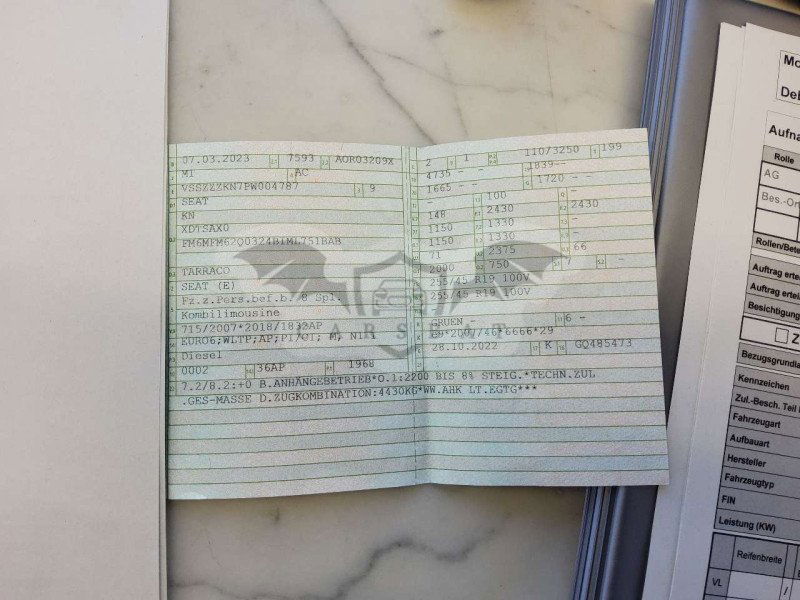 07.03.2023 7593 AOR03209X
M1 AC
VSSZZZKN7PW004787 9
SEAT
KN
XDTSAX0
FM6MFM62Q0324B1ML751BAB
TARRACO
SEAT (E)
Fz.z.Pers.bef.b. 8 Spl.
Kombilimousine
715/2007*2018/1832AP
EURO6;WLTP;AP;PI/CI; M, N1 I
Diesel
0002 36AP 1968
7.2/8.2:+0 B.ANHÄNGEBETRIEB*O.1:2200 BIS 8% STEIG.*TECHN.ZUL
.GES-MASSE D.ZUGKOMBINATION:4430KG*WW.AHK LT.EGTG***
2 1 110/3250 199
4735 - - 1839--
1665 - - 1720 --
- 100 -
148 2430 2430
1150 1330 -
1150 1330 -
71 2375 66
2000 750 7 -
255/45 R19 100V
255/45 R19 100V
-
GRUEN - 6 -
E9*2007/46*6666*29
28.10.2022 K GQ485473
CARSFAX
Mo
Deb
Aufna
Rolle
AG
Bes.-Or
Rollen/Bete
Auftrag ertei
Auftrag ertei
Besichtigung
Z
Bezugsgrundla
Kennzeichen
Zul.-Besch. Teil I
Fahrzeugart
Aufbauart
Hersteller
Fahrzeugtyp
FIN
Leistung (KW)
Reifenbreite
VL /